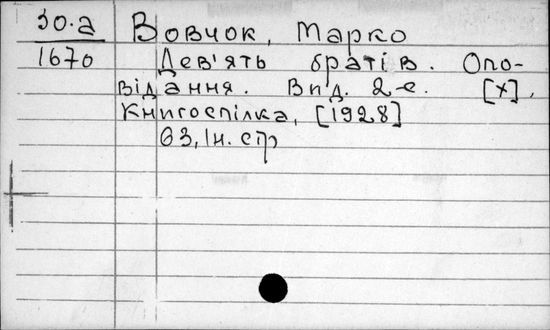 30.а Вовчок, Марко
1670 Дев'ять братів. Опо-
відання. Вид. 2-е. [х],
Книгоспілка, [1928]
63, 1н. стр